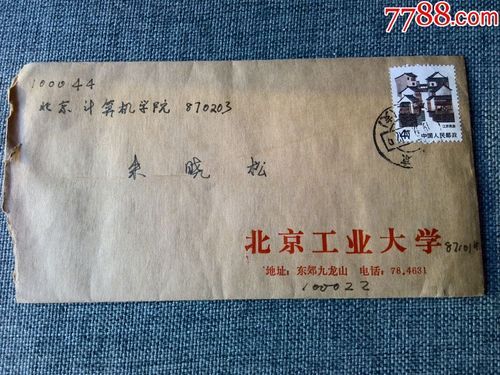 7788.com
100044
北京 计算机学院 870203
晓松
江苏民居
中国人民邮政
北京工业大学
地址：东郊九龙山 电话：78.4631
100022